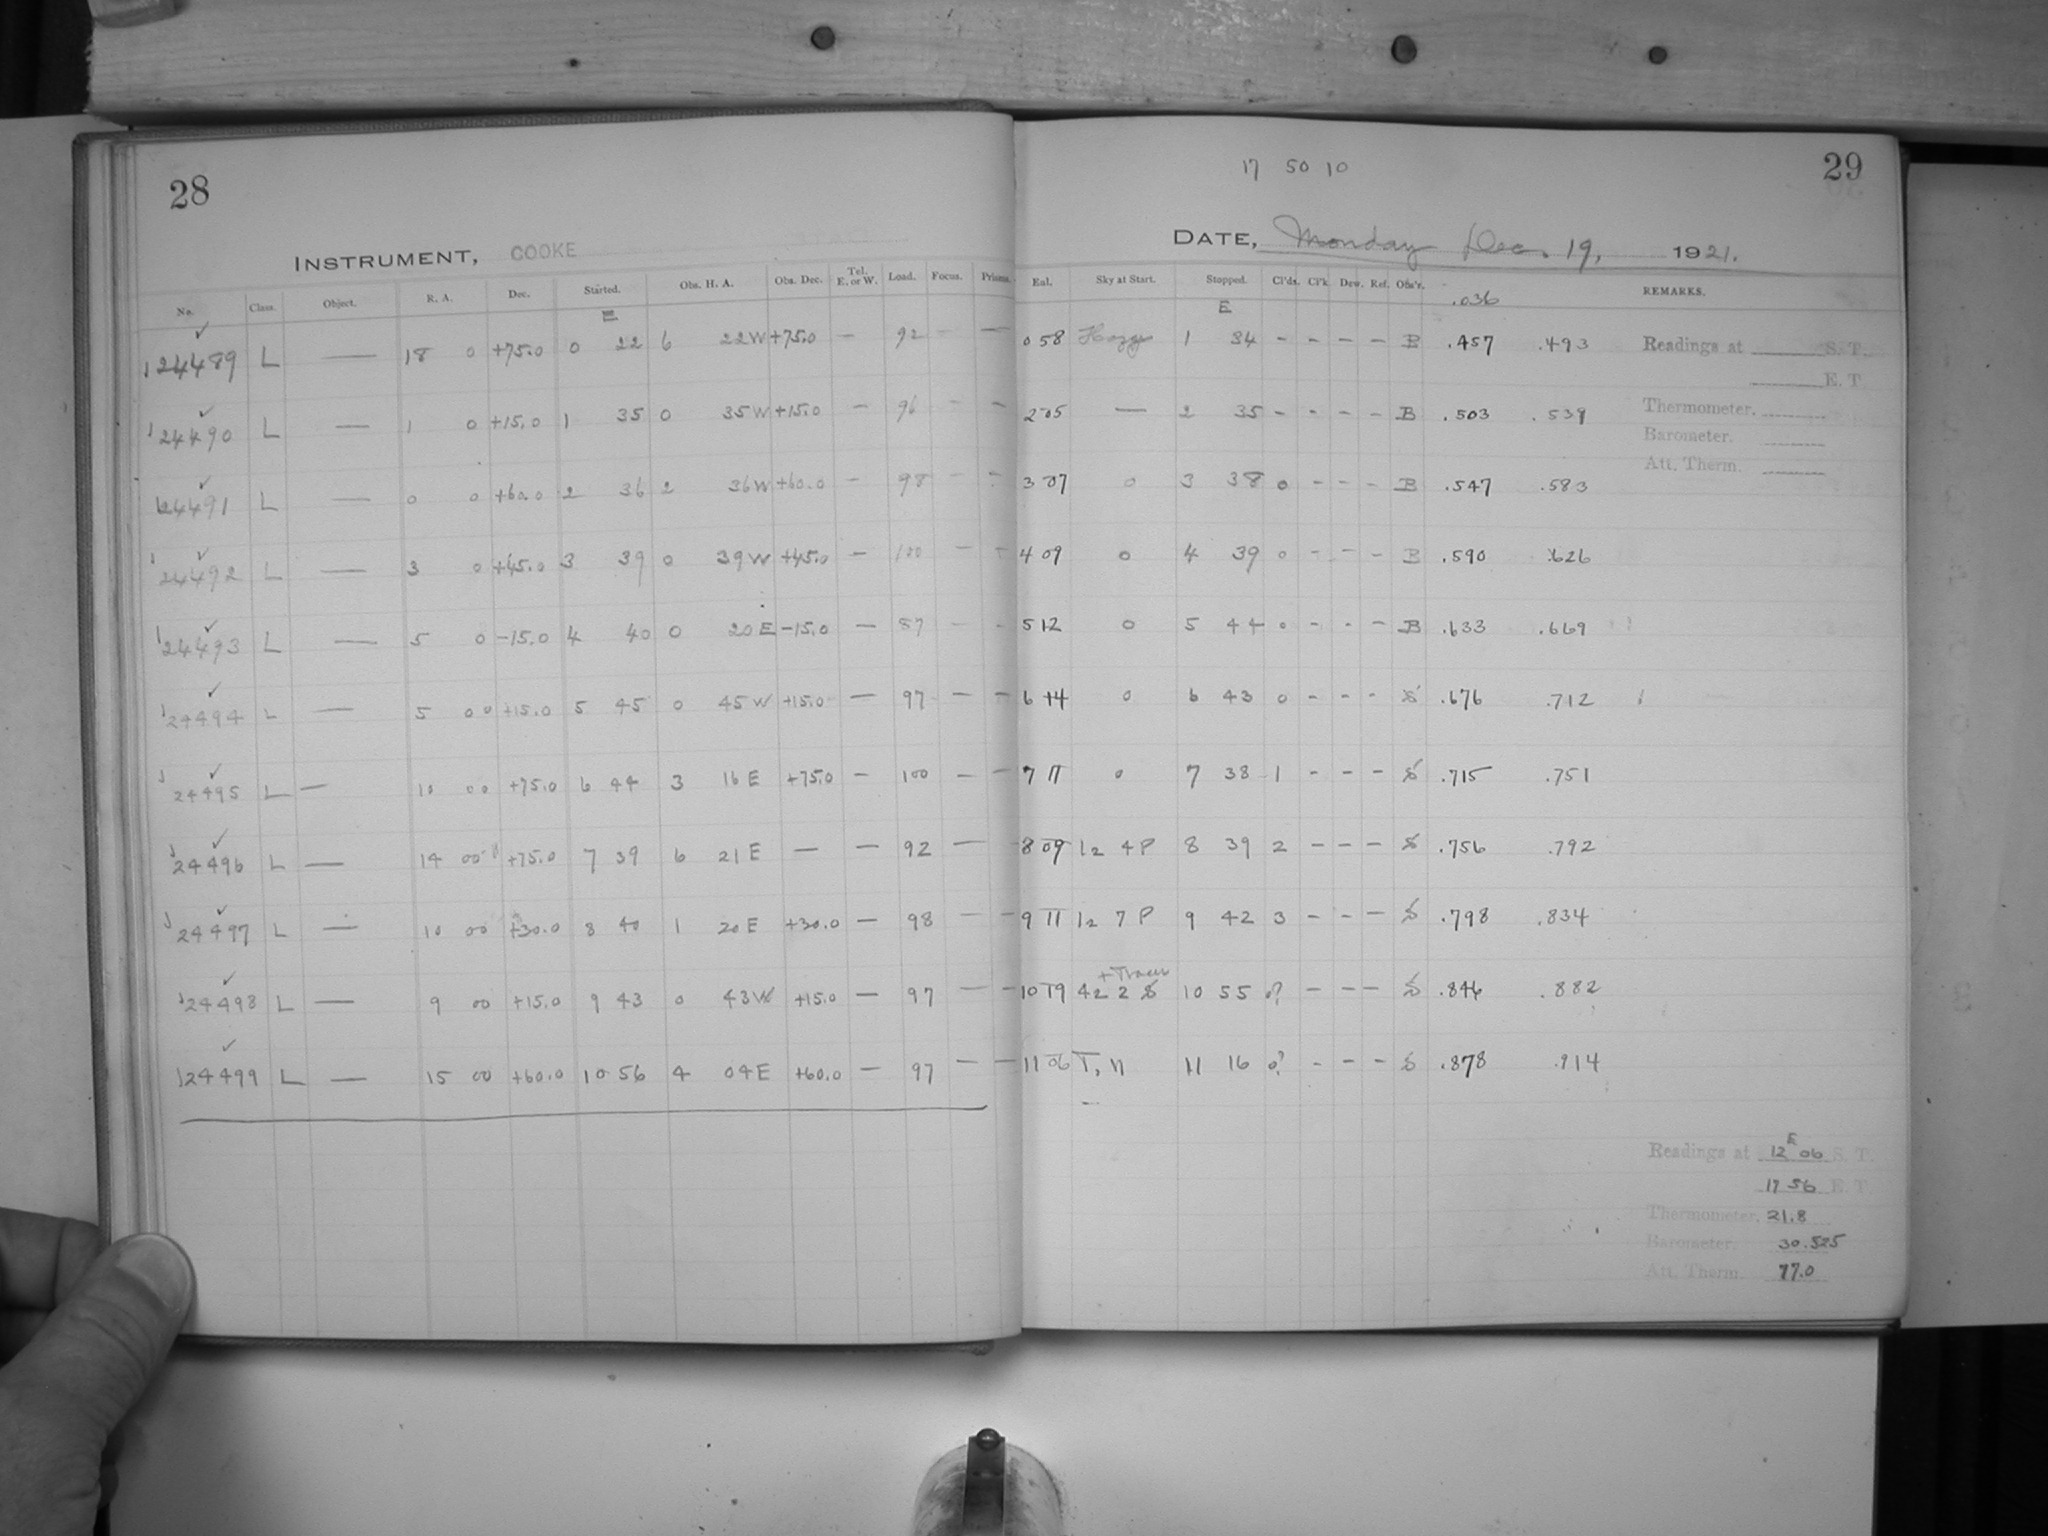 28
INSTRUMENT, COOKE
No. Class. Object. R. A. Dec. Started. Obs. H. A. Obs. Dec. Tel. E. or W. Load. Focus. Prisms.
E
124489 L — 18 0 +75.0 0 22 6 22W +75.0 — 92 — —
124490 L — 1 0 +15.0 1 35 0 35W +15.0 — 96 — —
124491 L — 0 0 +60.0 2 36 2 36W +60.0 — 98 — —
124492 L — 3 0 +45.0 3 39 0 39W +45.0 — 100 — —
124493 L — 5 0 -15.0 4 40 0 20E -15.0 — 87 — —
124494 L — 5 00 +15.0 5 45 0 45W +15.0 — 97 — —
124495 L — 10 00 +75.0 6 44 3 16E +75.0 — 100 — —
124496 L — 14 00 +75.0 7 39 6 21E — — 92 — —
124497 L — 10 00 +30.0 8 40 1 20E +30.0 — 98 — —
124498 L — 9 00 +15.0 9 43 0 43W +15.0 — 97 — —
124499 L — 15 00 +60.0 10 56 4 04E +60.0 — 97 — —
17 50 10
29
DATE, Monday Dec. 19, 1921.
Eal. Sky at Start. Stopped. Cl'ds. Cl'k. Dew. Ref. Obs'r. REMARKS.
E .036
0 58 Hazy 1 34 - - - - B .457 .493
2 05 — 2 35 - - - - B .503 .539
3 07 0 3 38 0 - - - B .547 .583
4 09 0 4 39 0 - - - B .590 .626
5 12 0 5 44 0 - - - B .633 .669
6 14 0 6 43 0 - - - S .676 .712
7 11 0 7 38 1 - - - S .715 .751
8 09 12 4P 8 39 2 - - - S .756 .792
9 11 12 7 P 9 42 3 - - - S .798 .834
10 19 42 2 S 10 55 0? - - - S .846 .882
11 06 T, 11 11 16 0? - - - S .878 .914
Readings at S. T.
E. T.
Thermometer.
Barometer.
Att. Therm.
Readings at 12 E 06 S. T.
17 56 E. T.
Thermometer. 21.8
Barometer. 30.525
Att. Therm. 77.0